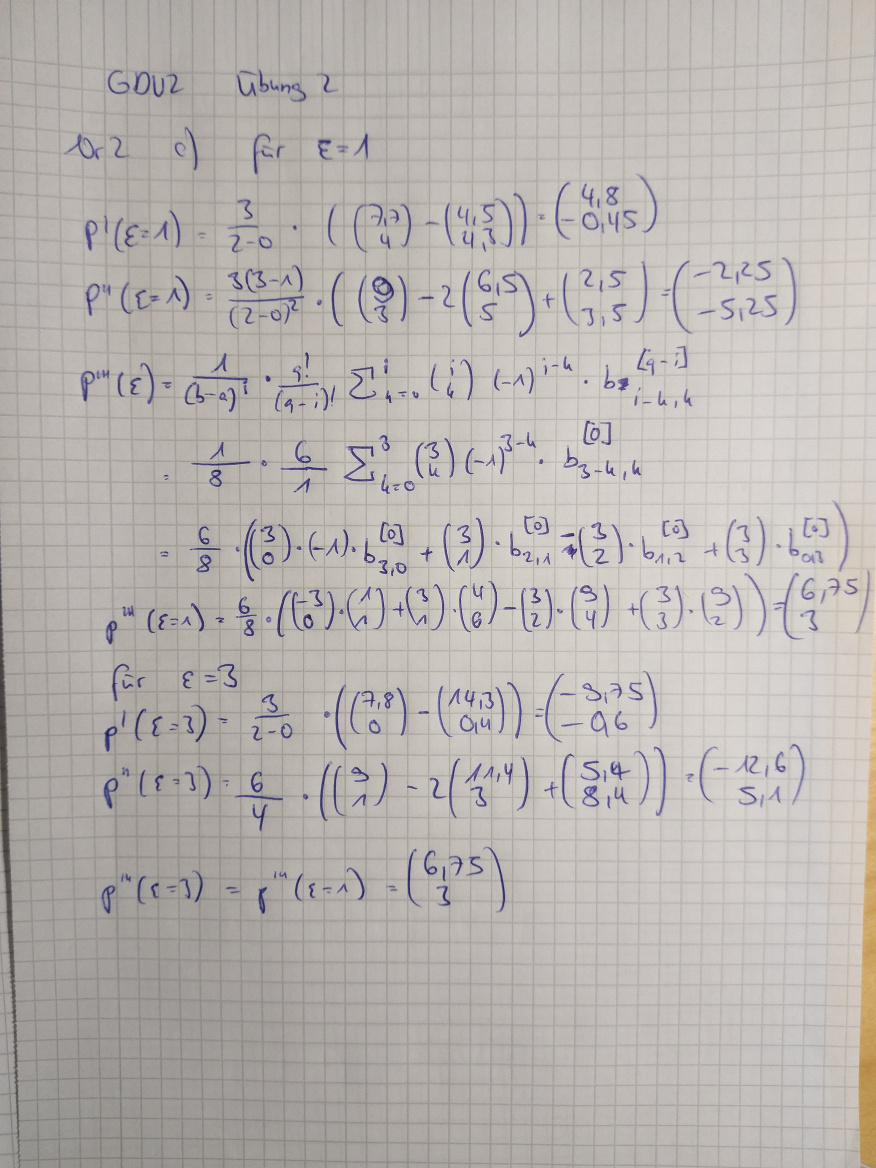 GDV2 Übung 2
Nr 2 c) für ε=1
p'(ε=1) = 3/(2-0) · ( (7,7 4) - (4,5 4,3) ) = (4,8 -0,45)
p''(ε=1) = 3(3-1)/(2-0)² · ( (9 3) - 2(6,5 5) + (2,5 3,5) = (-2,25 -5,25)
p'''(ε) = 1/(b-a)^i · q!/(q-i)! Σ_{k=0}^{i} (i k) (-1)^{i-k} · b_{i-k,k}^{[q-i]}
= 1/8 · 6/1 Σ_{k=0}^{3} (3 k) (-1)^{3-k} · b_{3-k,k}^{[0]}
= 6/8 · ( (3 0) · (-1) · b_{3,0}^{[0]} + (3 1) · b_{2,1}^{[0]} - (3 2) · b_{1,2}^{[0]} + (3 3) · b_{0,3}^{[0]} )
p'''(ε=1) = 6/8 · ( (-3 0) · (1 1) + (3 1) · (4 6) - (3 2) · (9 4) + (3 3) · (9 2) ) = (6,75 3)
für ε=3
p'(ε=3) = 3/(2-0) · ( (7,8 0) - (14,3 0,4) ) = (-9,75 -0,6)
p''(ε=3) = 6/4 · ( (9 1) - 2(11,4 3) + (5,4 8,4) ) = (-12,6 5,1)
p'''(ε=3) = p'''(ε=1) = (6,75 3)